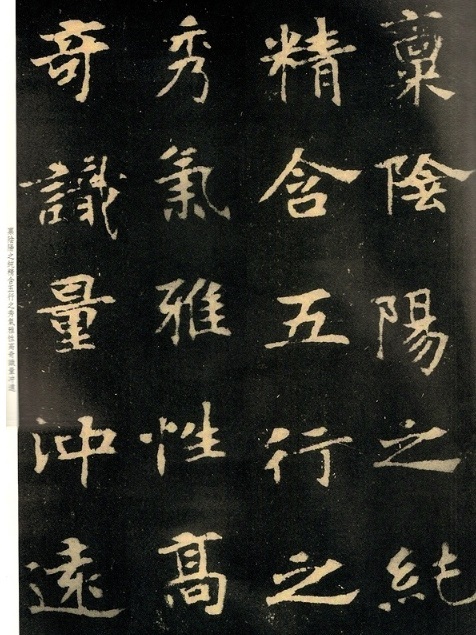 稟陰陽之純
精含五行之
秀氣雅性高
奇識量沖遠
稟陰陽之純精含五行之秀氣雅性高奇識量沖遠